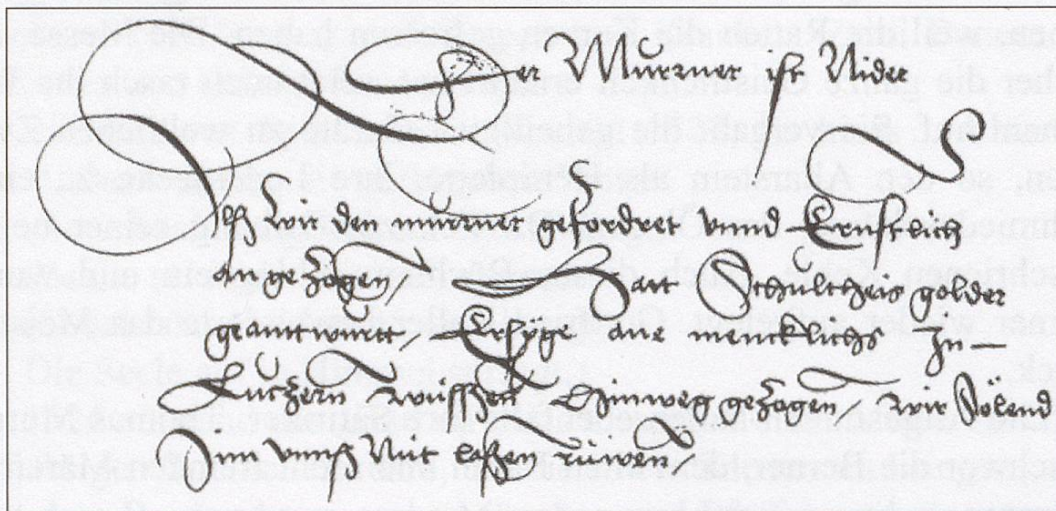 Der Murrner ist Nider
Ich wir den murner gefordret unnd Ernstlich
angezogen, Hatt Schultheis golder
geantwurtt, Er syge ane mencklichs zu
Lutzern wüssen hinweg gezogen, wir sölend
Inn unnß Nüt lassen rüwen,